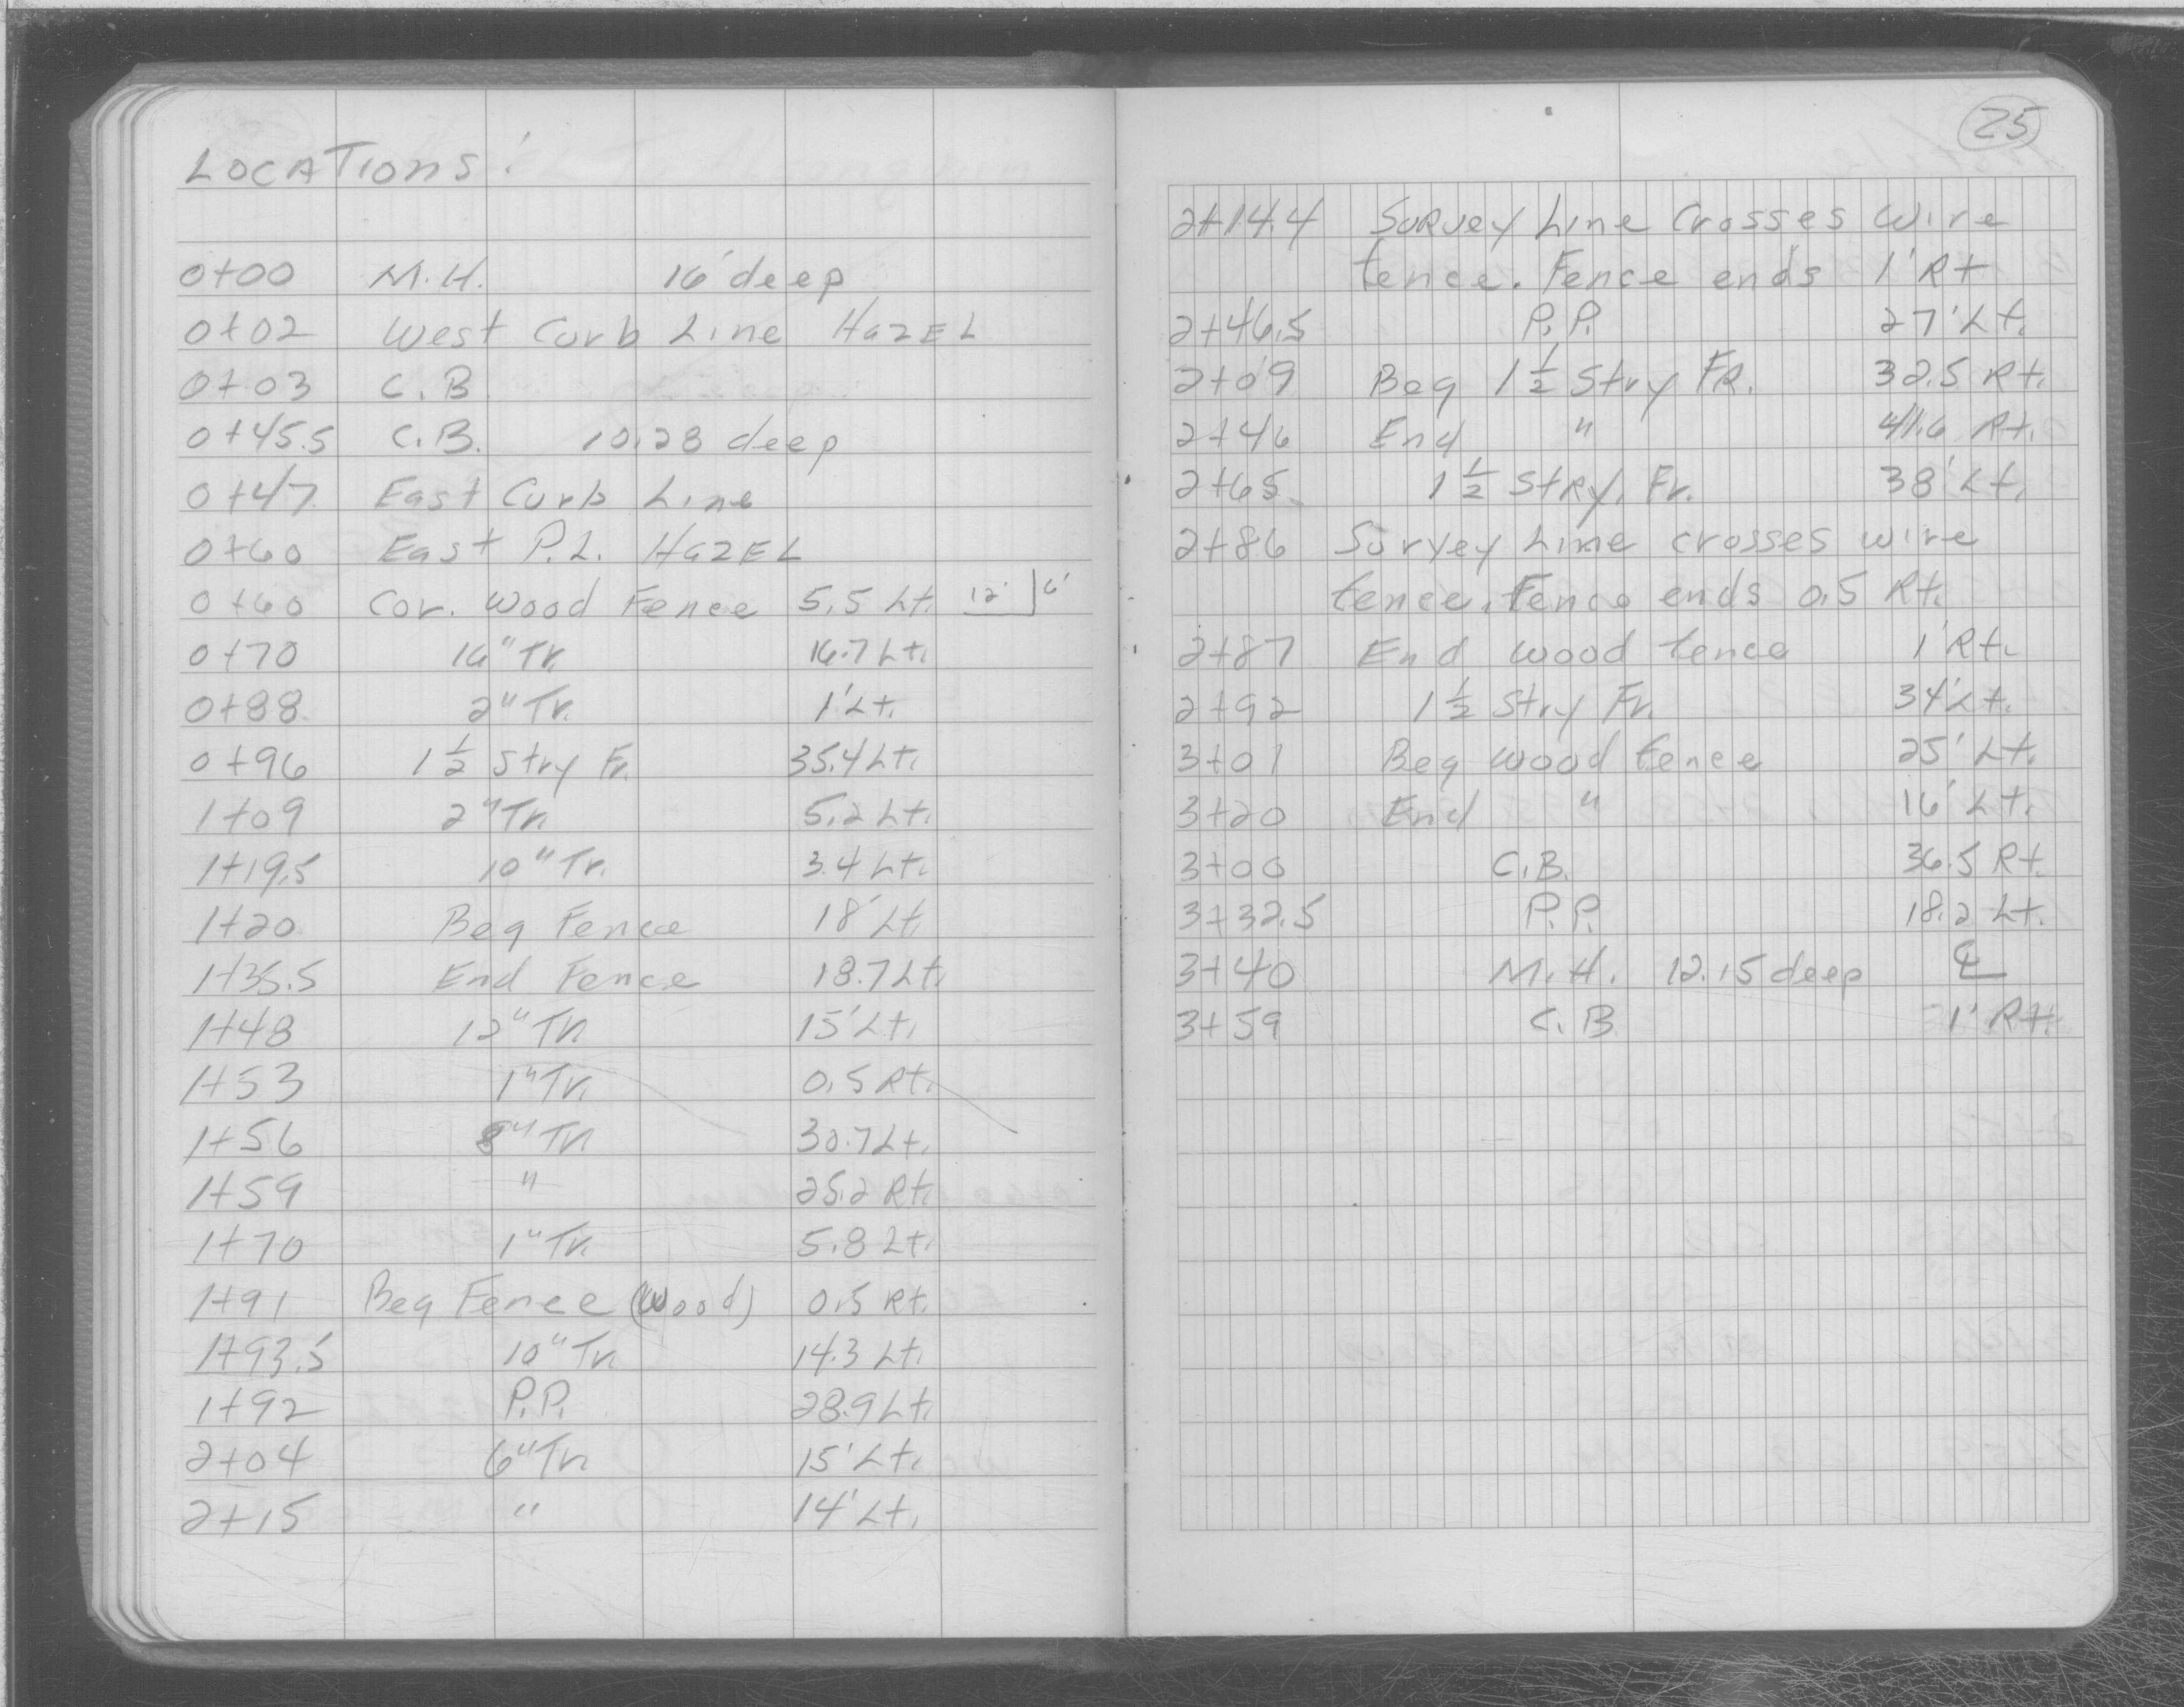 LOCATIONS:
0+00 M.H. 16' deep
0+02 West Curb Line HAZEL
0+03 C.B
0+45.5 C.B. 10.28 deep
0+47 East Curb Line
0+60 East P.L. HAZEL
0+60 Cor. Wood Fence 5.5 Lt. 12' 6'
0+70 16" Tr. 16.7 Lt.
0+88 2" Tr. 1' Lt.
0+96 1 1/2 Stry Fr. 35.4 Lt.
1+09 2" Tr. 5.2 Lt.
1+19.5 10" Tr. 3.4 Lt.
1+20 Beg Fence 18' Lt.
1+35.5 End Fence 18.7 Lt.
1+48 12" Tr. 15' Lt.
1+53 1" Tr. 0.5 Rt.
1+56 8" Tr. 30.7 Lt.
1+59 " 25.2 Rt.
1+70 1" Tr. 5.8 Lt.
1+91 Beg Fence (Wood) 0.5 Rt.
1+93.5 10" Tr. 14.3 Lt.
1+92 P.P. 28.9 Lt.
2+04 6" Tr. 15' Lt.
2+15 " 14' Lt.
25
2+14.4 Survey Line Crosses Wire
fence. Fence ends 1' Rt
2+46.5 P.P. 27' Lt.
2+09 Beg 1 1/2 Stry FR. 32.5 Rt.
2+46 End " 41.6 Rt.
2+65 1 1/2 Stry. Fr. 38' Lt.
2+86 Survey Line crosses wire
fence. Fence ends 0.5 Rt.
2+87 End wood fence 1' Rt.
2+92 1 1/2 Stry Fr. 34' Lt.
3+01 Beg wood fence 25' Lt.
3+20 End " 16' Lt.
3+00 C.B. 36.5 Rt.
3+32.5 P.P. 18.2 Lt.
3+40 M.H. 12.15 deep ℄
3+59 C.B. 1' Rt.